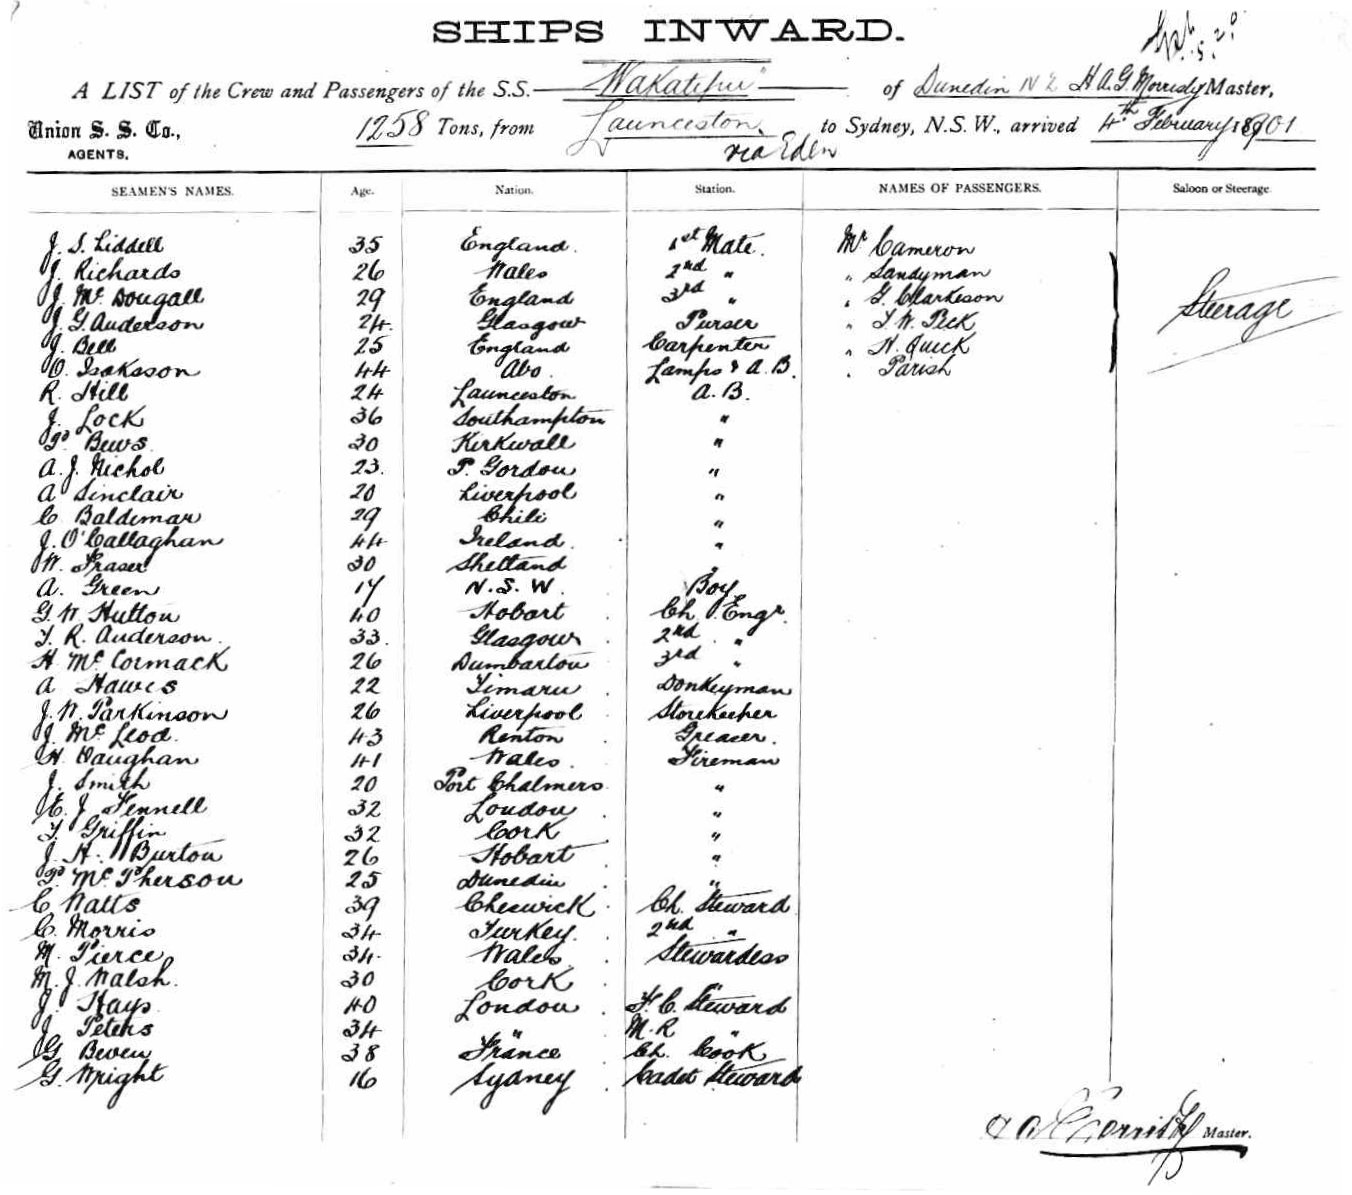 SHIPS INWARD.
A LIST of the Crew and Passengers of the S.S. "Wakatipu" of Dunedin N Z H A G Morrisby Master,
Union S. S. Co., 1258 Tons, from Launceston, to Sydney, N.S.W., arrived 4th February 1901
AGENTS. via Eden
SEAMEN'S NAMES. Age. Nation. Station. NAMES OF PASSENGERS. Saloon or Steerage.
J. S. Liddell 35 England. 1st Mate. Mr Cameron
J. Richards 26 Wales 2nd " " Sandyman
J. Mc Dougall 29 England 3rd " " G. Clarkeson Steerage
J. G. Anderson 24. Glasgow Purser " T. W. Peck
J. Bell 25 England Carpenter " H. Quick
O. Isaksson 44 Abo. Lamps & A. B. " Parish
R. Hill 24 Launceston A. B.
J. Lock 36 Southampton "
P. Bews 30 Kirkwall "
A. J. Nichol 23. P. Gordon "
A Sinclair 20 Liverpool "
C Baldimar 29 Chili "
J. O'Callaghan 44 Ireland. "
W. Fraser 30 Shetland "
A. Green 17 N. S. W. Boy
G. W Hutton 40 Hobart Ch. Engr.
T. R. Anderson. 33. Glasgow. 2nd "
H Mc Cormack 26 Dumbarton 3rd "
A Hawes 22 Timaru. Donkeyman
J. W. Parkinson 26 Liverpool Storekeeper
J. Mc Leod. 43 Renton. Greaser.
H. Vaughan 41 Wales. Fireman
J. Smith 20 Port Chalmers "
E. J. Fennell 32 London. "
T. Griffin 32 Cork. "
J. H. Burton 26 Hobart. "
P. Mc Pherson 25 Dunedin. "
C Watts 39 Cheswick. Ch. Steward
C. Morris 34 Turkey. 2nd "
M. Pierce 34. Wales. Stewardess
M. J. Walsh. 30 Cork. "
J. Hays 40 London. F. C. Steward
J. Peters 34 " M. R "
G Beven 38 France Ch. Cook
G. Wright 16 Sydney. Cadet Steward
Master.